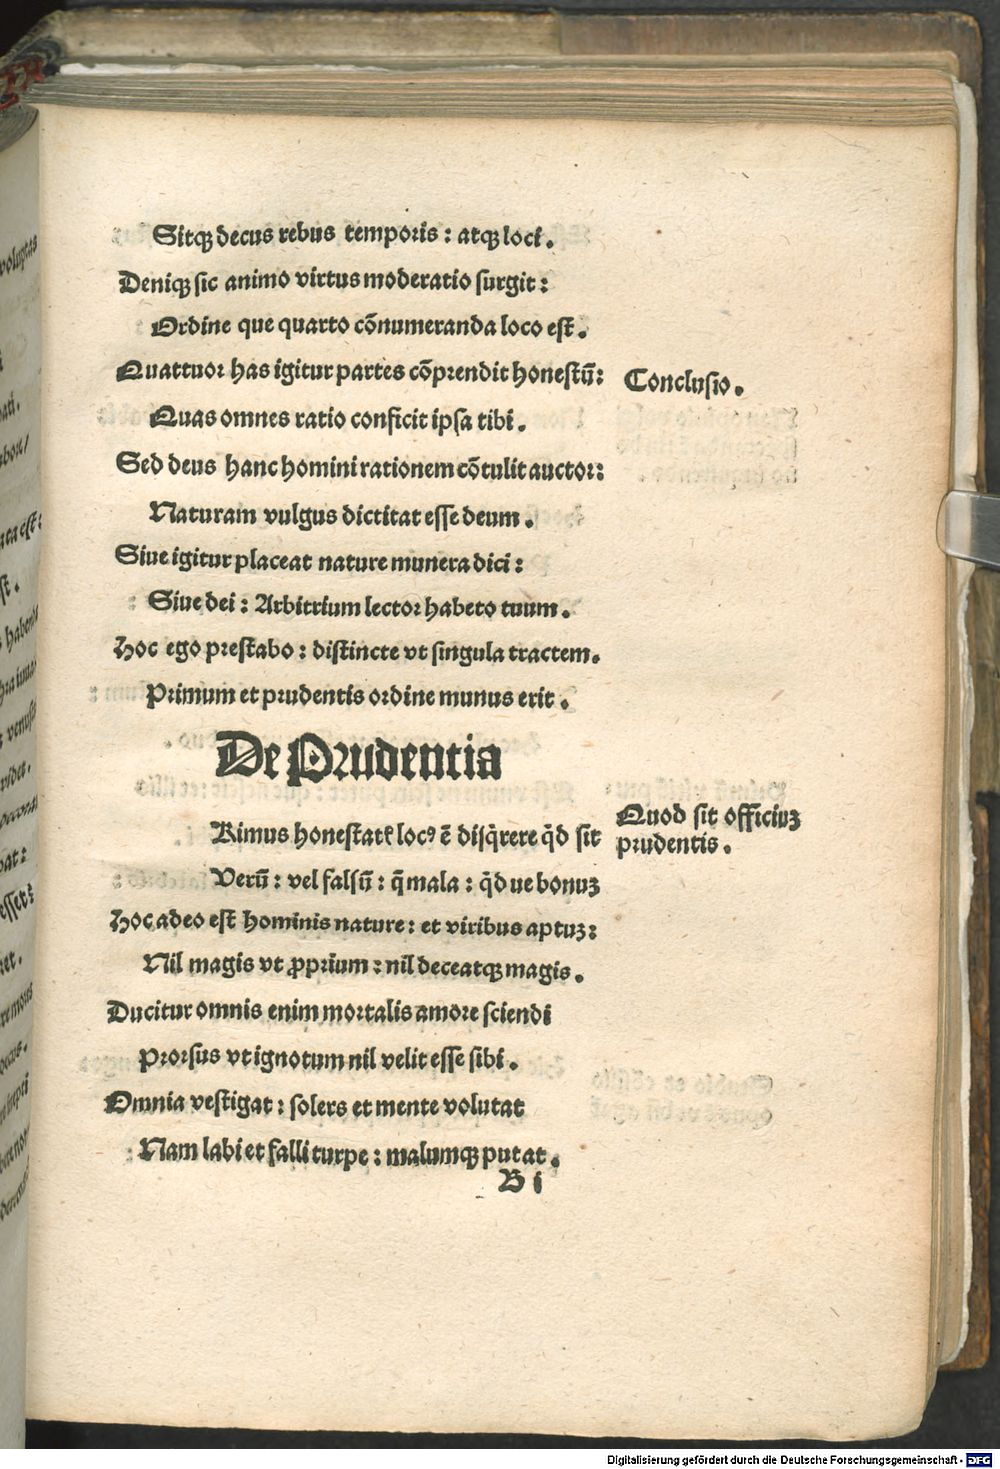 Sitqꝫ decus rebus temporis : atqꝫ loci .
Deniqꝫ sic animo virtus moderatio surgit :
Ordine que quarto cõnumeranda loco est .
Quattuor has igitur partes cõprendit honestũ :
Conclusio .
Quas omnes ratio conficit ipsa tibi .
Sed deus hanc homini rationem cõtulit auctor :
Naturam vulgus dictitat esse deum .
Siue igitur placeat nature munera dici :
Siue dei : Arbitrium lector habeto tuum .
Hoc ego prestabo : distincte vt singula tractem .
Primum et prudentis ordine munus erit .
De Prudentia
Quod sit officiuꝫ
prudentis .
Rimus honestatꝭ locꝰ ẽ disq̃rere q̃d sit
Verũ : vel falsũ : q̃ mala : q̃d ue bonuꝫ
Hoc adeo est hominis nature : et viribus aptuꝫ :
Nil magis vt ꝓprium : nil deceatqꝫ magis .
Ducitur omnis enim mortalis amore sciendi
Prorsus vt ignotum nil velit esse sibi .
Omnia vestigat : solers et mente volutat
Nam labi et falli turpe : malumqꝫ putat .
B i
Digitalisierung gefördert durch die Deutsche Forschungsgemeinschaft - DFG